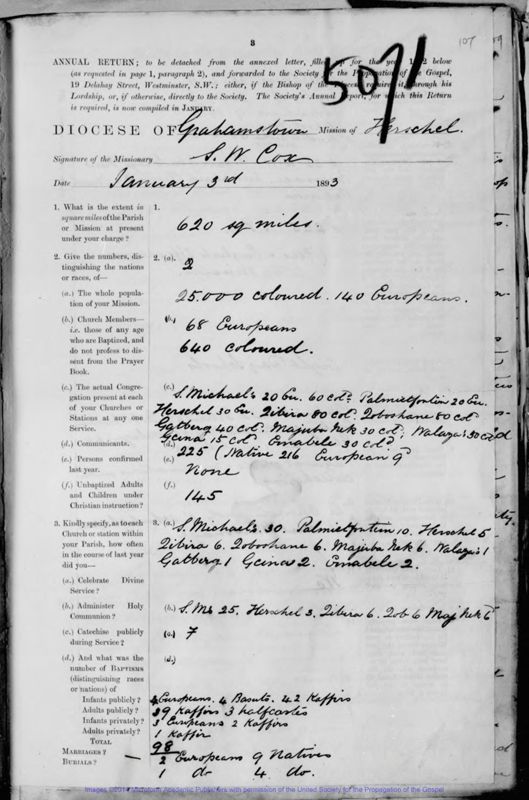 3
107
ANNUAL RETURN; to be detached from the annexed letter, filled up for the year 1892 below
(as requested in page 1, paragraph 2), and forwarded to the Society for the Propagation of the Gospel,
19 Delahay Street, Westminster, S.W.: either, if the Bishop of the Diocese require it, through his
Lordship, or, if otherwise, directly to the Society. The Society's Annual Report, for which this Return
is required, is now compiled in JANUARY.
DIOCESE OF Grahamstown Mission of Herschel.
Signature of the Missionary S. W. Cox
Date January 3rd 1893
1. What is the extent in
square miles of the Parish
or Mission at present
under your charge?
1.
620 sq miles.
2. Give the numbers, dis-
tinguishing the nations
or races, of—
2. (a).
2
(a.) The whole popula-
tion of your Mission.
25.000 coloured. 140 Europeans.
(b.) Church Members—
i.e. those of any age
who are Baptized, and
do not profess to dis-
sent from the Prayer
Book.
(b.)
68 Europeans
640 coloured.
(c.) The actual Congre-
gation present at each
of your Churches or
Stations at any one
Service.
(c.)
S. Michael's 20 Eu. 60 col: Palmietfontein 20 Eu.
Herschel 30 Eu. Qibira 80 col. Qoboshane 60 col
Gatberg 40 col: Majuba Nek 30 col: Nalaga's 30 col
Gcina 15 col Emabele 30 col
(d.) Communicants.
(d.)
225 (Native 216 European 9
(e.) Persons confirmed
last year.
(e.)
None
(f.) Unbaptized Adults
and Children under
Christian instruction?
(f.)
145
3. Kindly specify, as to each
Church or station within
your Parish, how often
in the course of last year
did you—
3. (a.)
S. Michael's. 30. Palmietfontein 10. Herschel 5
Qibira 6. Qoboshane 6. Majuba Nek 6. Nalaga's 1
Gatberg 1 Gcinas 2. Emabele 2.
(a.) Celebrate Divine
Service?
(b.) Administer Holy
Communion?
(b.) S. Ms 25. Herschel 3. Qibira 6. Qob 6 Maj Nek 6
(c.) Catechise publicly
during Service?
(c.) 7
(d.) And what was the
number of BAPTISMS
(distinguishing races
or nations) of
(d.)
Infants publicly?
4 Europeans. 4 Basuto. 42 Kaffirs
Adults publicly?
39 Kaffirs 3 halfcastes
Infants privately?
3 Europeans 2 Kaffirs
Adults privately?
1 Kaffir
TOTAL
98
MARRIAGES?
2 Europeans 9 Natives
BURIALS?
1 do 4 do.
Images ©2014 Microform Academic Publishers with permission of the United Society for the Propagation of the Gospel